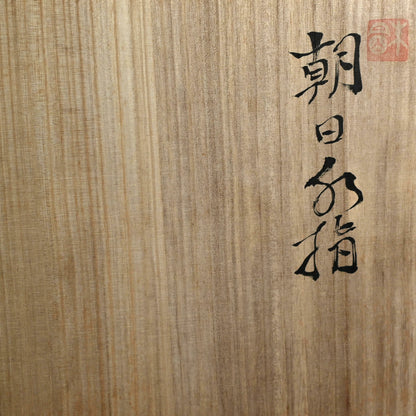 朝日水指